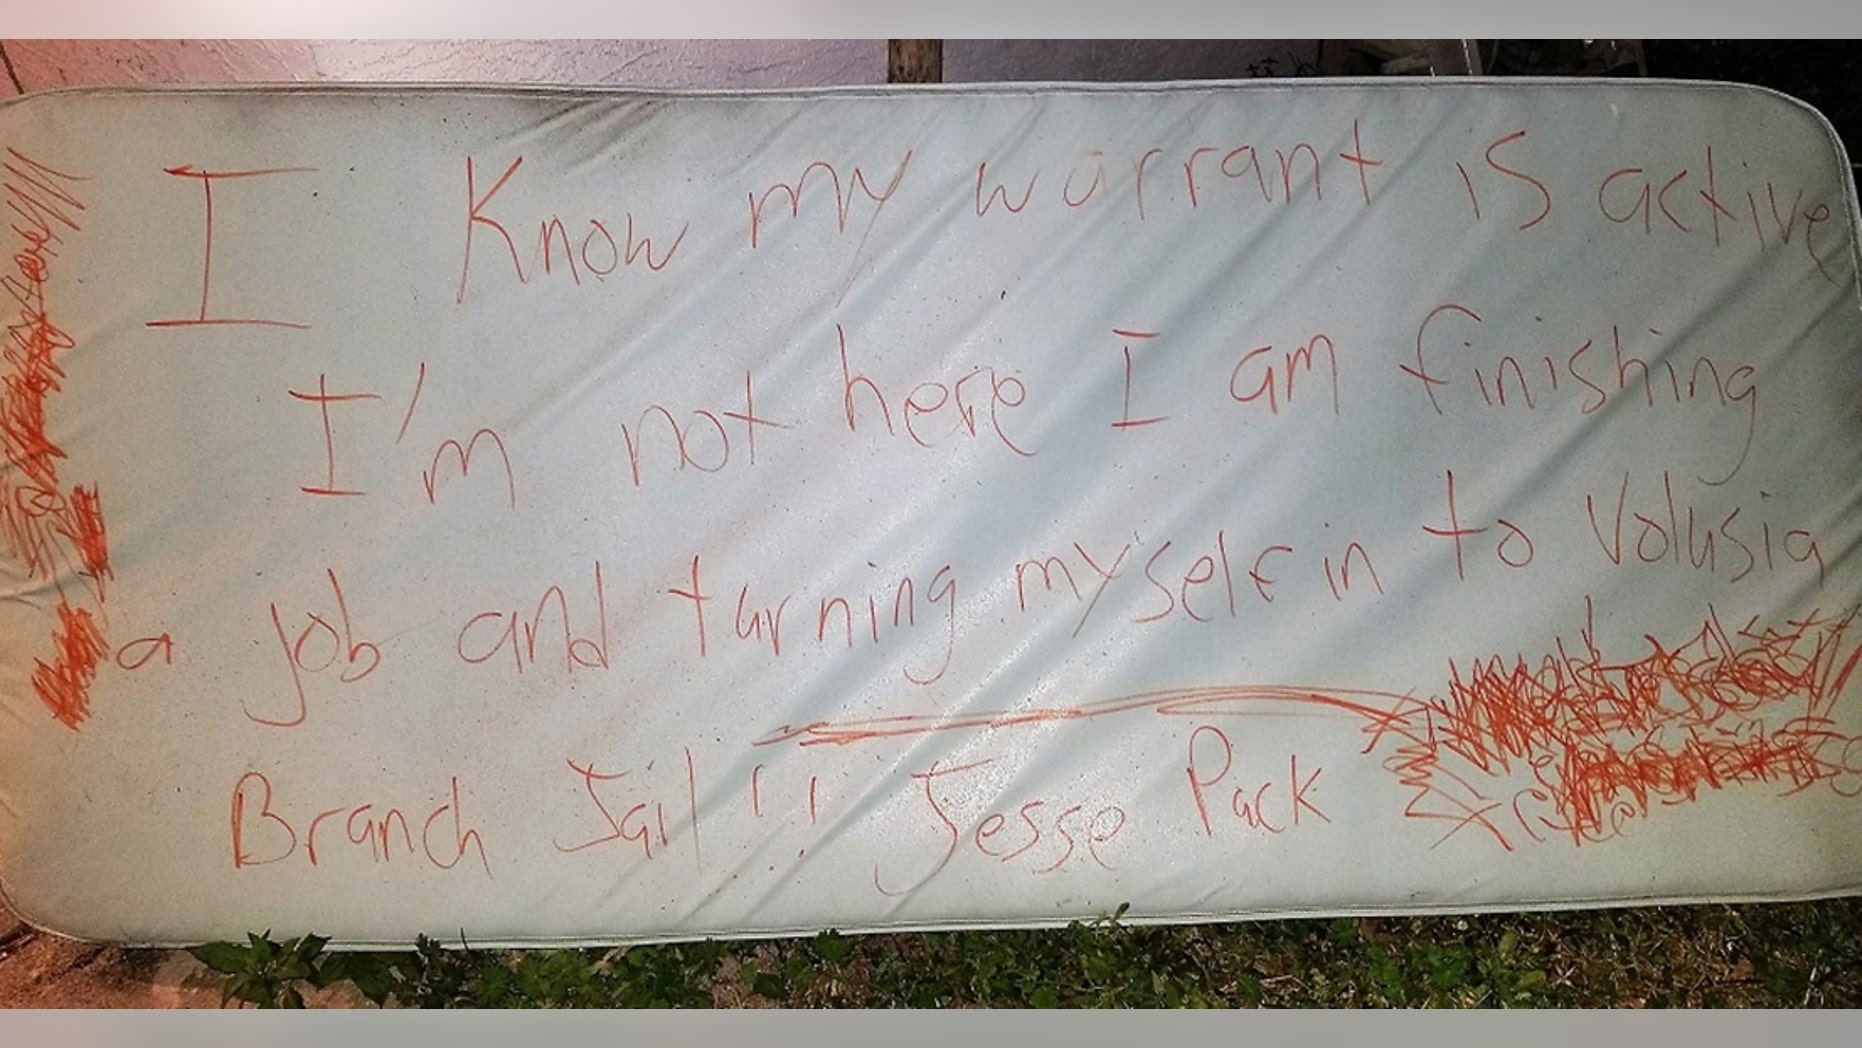 I Know my warrant is active
I'm not here I am finishing
a job and turning myself in to Volusia
Branch Jail!! Jesse Pack